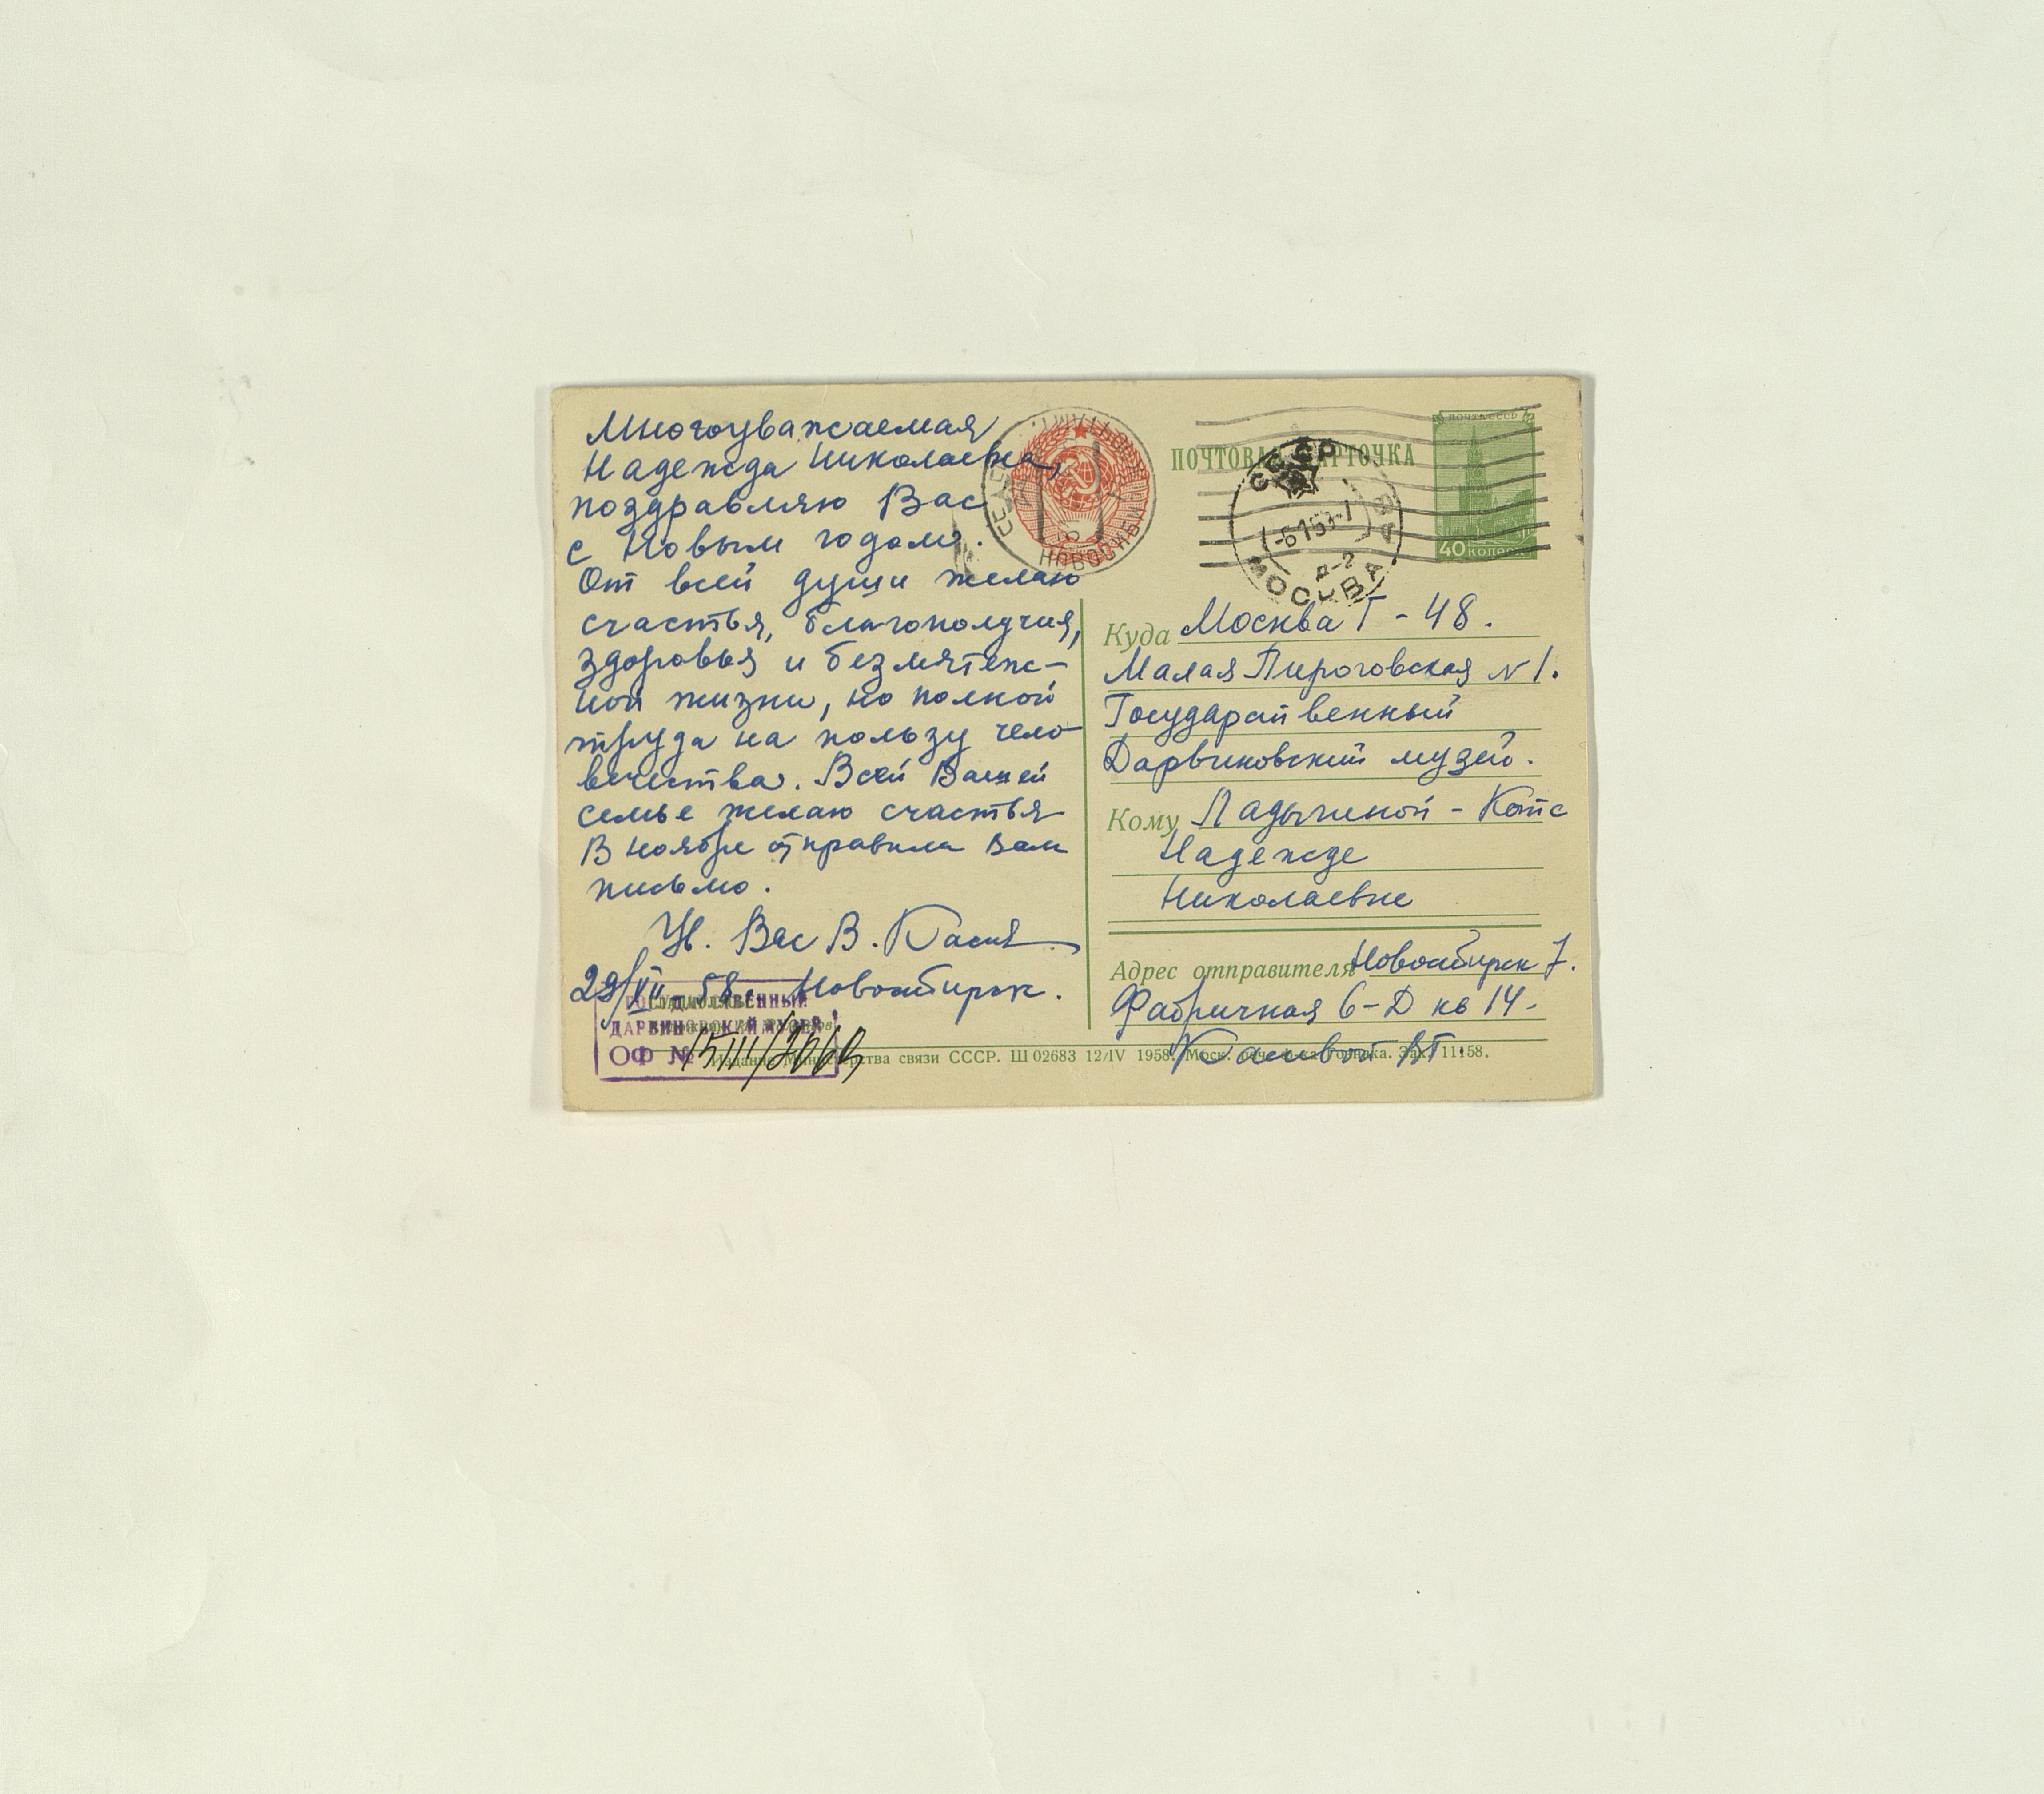 Многоуважаемая
Надежда Николаевна,
поздравляю Вас
с Новым годом.
От всей души желаю
счастья, благополучия,
здоровья и безмятеж-
ной жизни, но полной
труда на пользу чело-
вечества. Всей Вашей
семье желаю счастья
В ноябре отправила Вам
письмо.
Ув. Вас В.
29/XII-58. Новосибирск.
ГОСУДАРСТВЕННЫЙ
ДАРВИНОВСКИЙ МУЗЕЙ
ОФ №
Издание Министерства связи СССР. Ш 02683 12/IV 1958. Моск. печ. ф-ка Гознака. Зак. 11158.
НОВОСИБИРСК
ПОЧТОВАЯ КАРТОЧКА
СССР
МОСКВА
ПОЧТА СССР
40 КОПЕЕК
Куда Москва Г-48.
Малая Пироговская N 1.
Государственный
Дарвиновский музей.
Кому Ладыгиной-Котс
Надежде
Николаевне
Адрес отправителя Новосибирск 7.
Фабричная 6-Д кв 14-